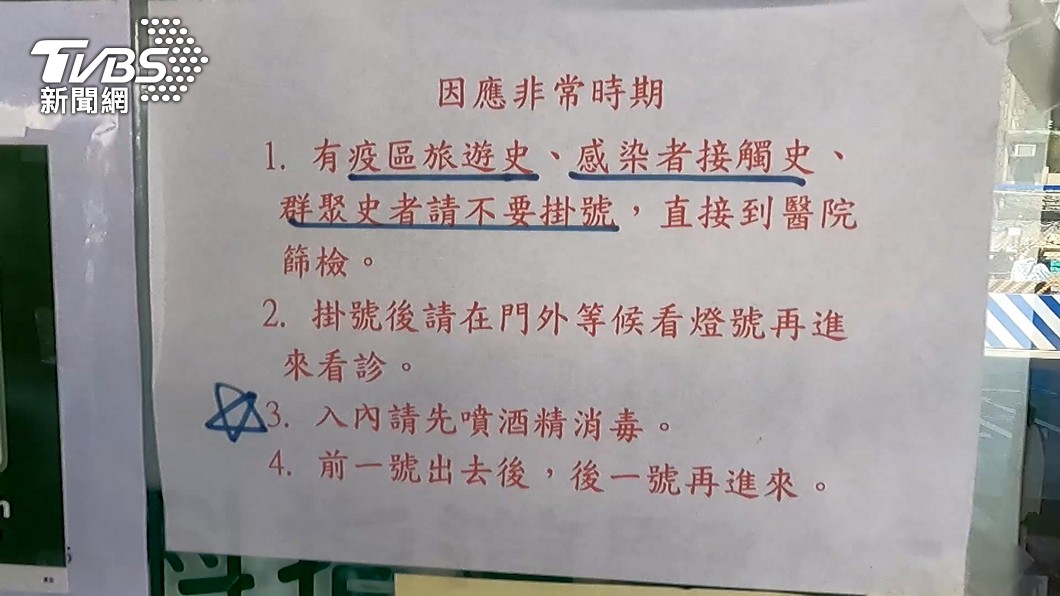 TVBS
新聞網
因應非常時期
1. 有疫區旅遊史、感染者接觸史、
群聚史者請不要掛號，直接到醫院
篩檢。
2. 掛號後請在門外等候看燈號再進
來看診。
3. 入內請先噴酒精消毒。
4. 前一號出去後，後一號再進來。